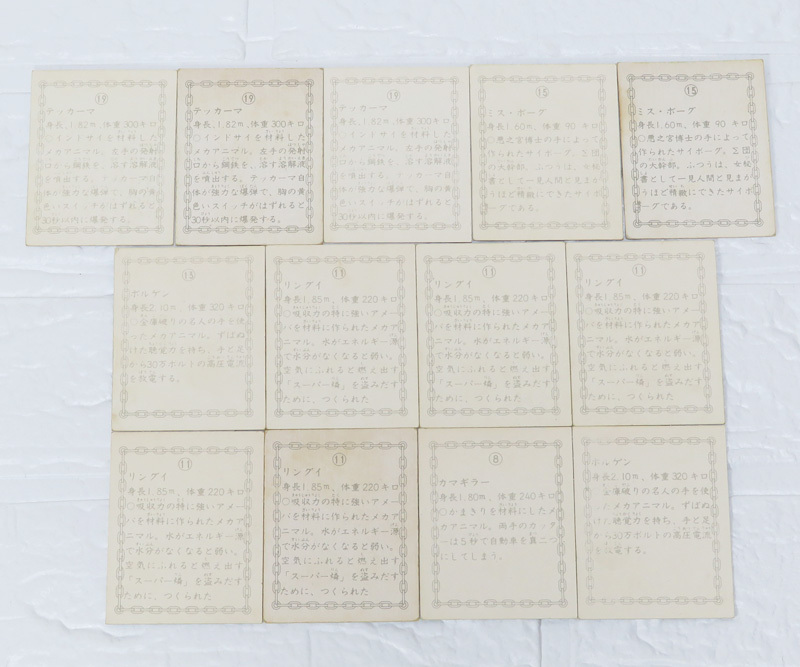 ⑲
テッカーマ
身長、1.82m、体重300キロ
○インドサイを材料した
メカアニマル。左手の発射
口から鋼鉄を、溶す溶解液
を噴出する。テッカーマ自
体が強力な爆弾で、胸の黄
色いスイッチがはずれると
30秒以内に爆発する。
⑲
テッカーマ
身長、1.82m、体重300キロ
○インドサイを材料した
メカアニマル。左手の発射
口から鋼鉄を、溶す溶解液
を噴出する。テッカーマ自
体が強力な爆弾で、胸の黄
色いスイッチがはずれると
30秒以内に爆発する。
⑲
テッカーマ
身長、1.82m、体重300キロ
○インドサイを材料した
メカアニマル。左手の発射
口から鋼鉄を、溶す溶解液
を噴出する。テッカーマ自
体が強力な爆弾で、胸の黄
色いスイッチがはずれると
30秒以内に爆発する。
⑮
ミス・ボーグ
身長1.60m、体重 90 キロ
○悪之宮博士の手によって
作られたサイボーグ。Σ団
の大幹部。ふつうは、女秘
書として一見人間と見まが
うほど精緻にできたサイボ
ーグである。
⑮
ミス・ボーグ
身長1.60m、体重 90 キロ
○悪之宮博士の手によって
作られたサイボーグ。Σ団
の大幹部。ふつうは、女秘
書として一見人間と見まが
うほど精緻にできたサイボ
ーグである。
⑬
ボルゲン
身長2.10m、体重320キロ
○金庫破りの名人の手を使
ったメカアニマル。ずばぬ
けた聴覚力を持ち、手と足
から30万ボルトの高圧電流
を放電する。
⑪
リングイ
身長1.85m、体重220キロ
○吸収力の特に強いアメー
バを材料に作られたメカア
ニマル。水がエネルギー源
で水分がなくなると弱い。
空気にふれると燃え出す
「スーパー燐」を盗みだす
ために、つくられた
⑪
リングイ
身長1.85m、体重220キロ
○吸収力の特に強いアメー
バを材料に作られたメカア
ニマル。水がエネルギー源
で水分がなくなると弱い。
空気にふれると燃え出す
「スーパー燐」を盗みだす
ために、つくられた
⑪
リングイ
身長1.85m、体重220キロ
○吸収力の特に強いアメー
バを材料に作られたメカア
ニマル。水がエネルギー源
で水分がなくなると弱い。
空気にふれると燃え出す
「スーパー燐」を盗みだす
ために、つくられた
⑪
リングイ
身長1.85m、体重220キロ
○吸収力の特に強いアメー
バを材料に作られたメカア
ニマル。水がエネルギー源
で水分がなくなると弱い。
空気にふれると燃え出す
「スーパー燐」を盗みだす
ために、つくられた
⑪
リングイ
身長1.85m、体重220キロ
○吸収力の特に強いアメー
バを材料に作られたメカア
ニマル。水がエネルギー源
で水分がなくなると弱い。
空気にふれると燃え出す
「スーパー燐」を盗みだす
ために、つくられた
⑧
カマギラー
身長1.80m、体重240キロ
○かまきりを材料にしたメ
カアニマル。両手のカッタ
ーは5秒で自動車を真二つ
にしてしまう。
ボルゲン
身長2.10m、体重320キロ
○金庫破りの名人の手を使
ったメカアニマル。ずばぬ
けた聴覚力を持ち、手と足
から30万ボルトの高圧電流
を放電する。